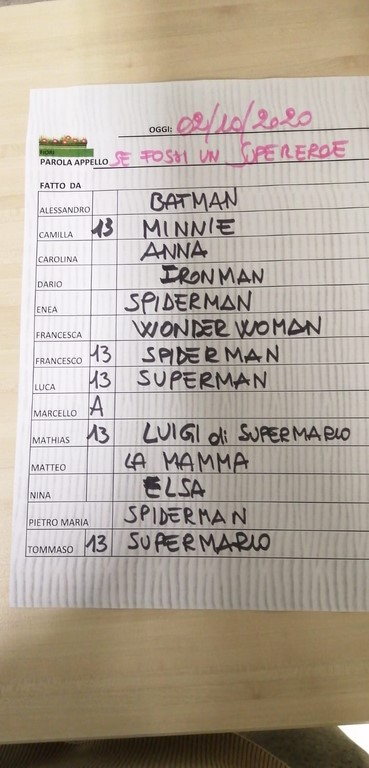 OGGI: 02/10/2020
FIORI
PAROLA APPELLO SE FOSSI UN SUPEREROE
FATTO DA
ALESSANDRO BATMAN
CAMILLA 13 MINNIE
CAROLINA ANNA
DARIO IRONMAN
ENEA SPIDERMAN
FRANCESCA WONDER WOMAN
FRANCESCO 13 SPIDERMAN
LUCA 13 SUPERMAN
MARCELLO A
MATHIAS 13 LUIGI di SUPERMARIO
MATTEO LA MAMMA
NINA ELSA
PIETRO MARIA SPIDERMAN
TOMMASO 13 SUPERMARIO